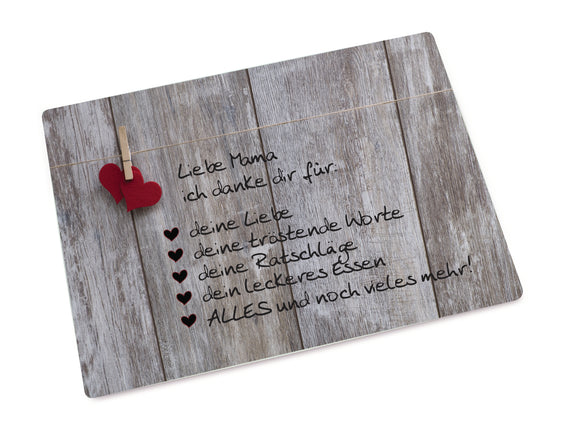 Liebe Mama
ich danke dir für:
deine Liebe
deine tröstende Worte
deine Ratschläge
dein leckeres Essen
ALLES und noch vieles mehr!